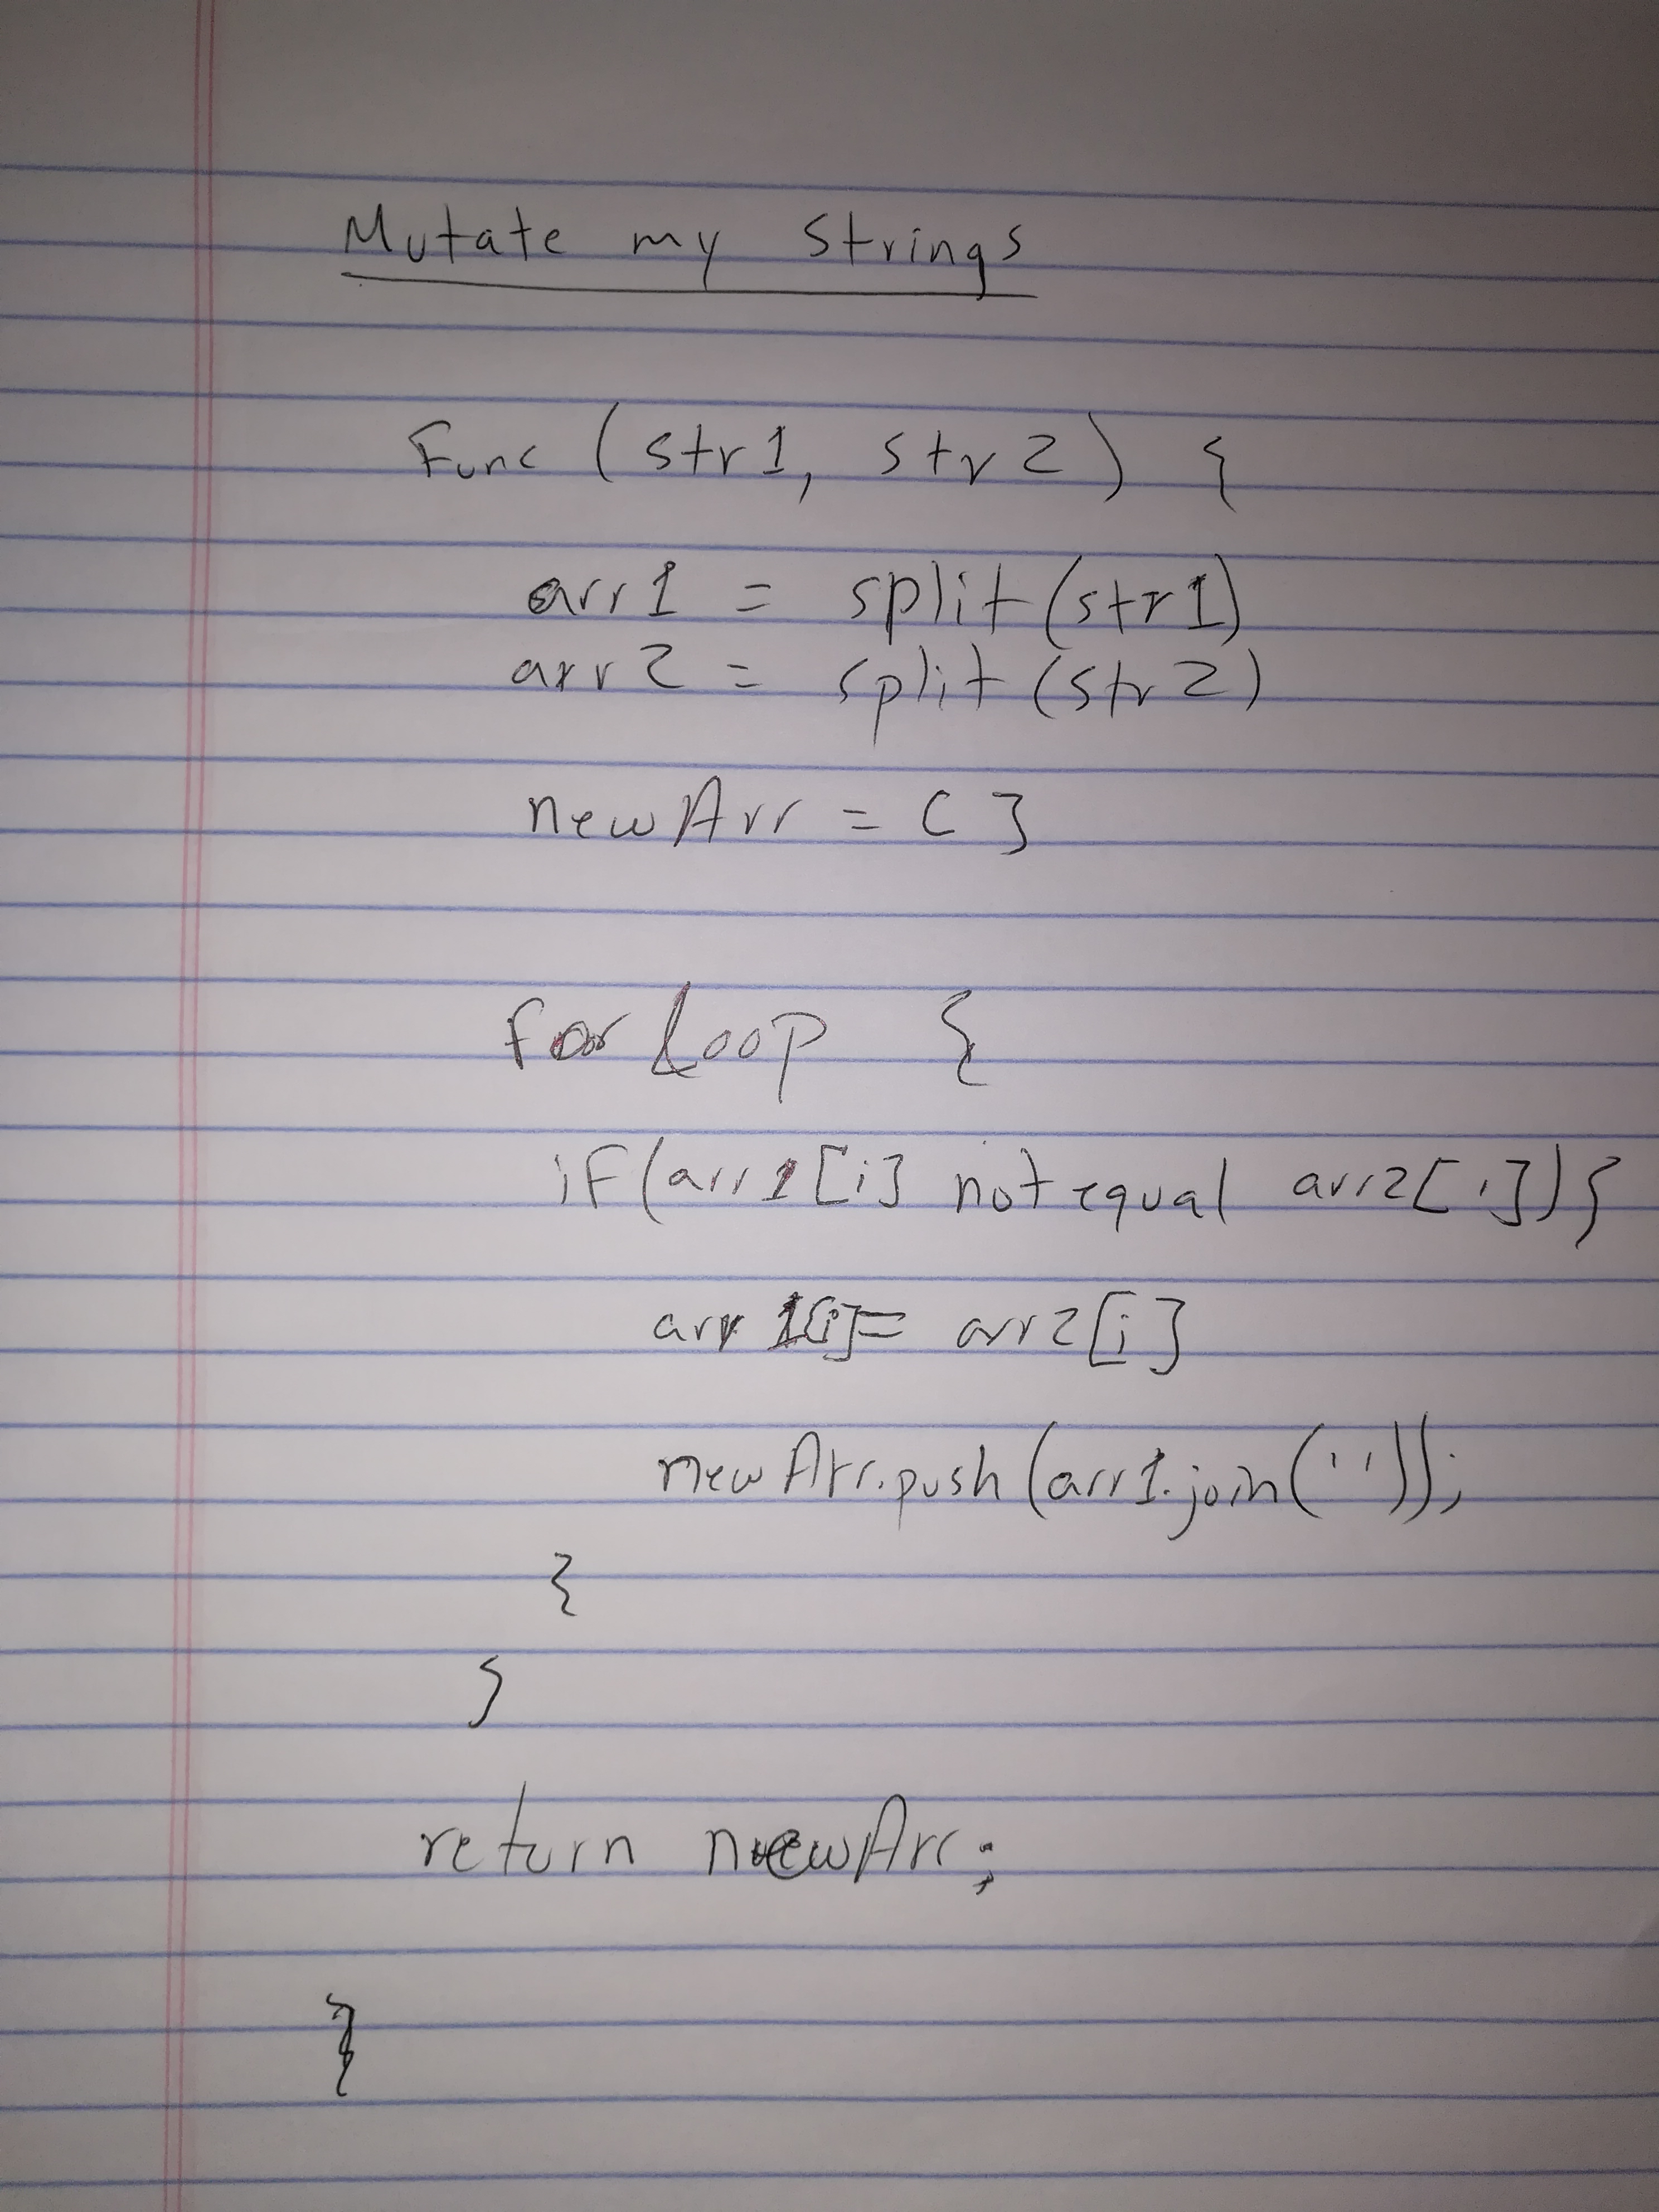 Mutate my strings
Func (str1, str2) {
arr1 = split(str1)
arr2 = split(str2)
newArr = []
for Loop {
if(arr1[i] not equal arr2[i]){
arr1[i]= arr2[i]
newArr.push(arr1.join(''));
}
}
return newArr;
}